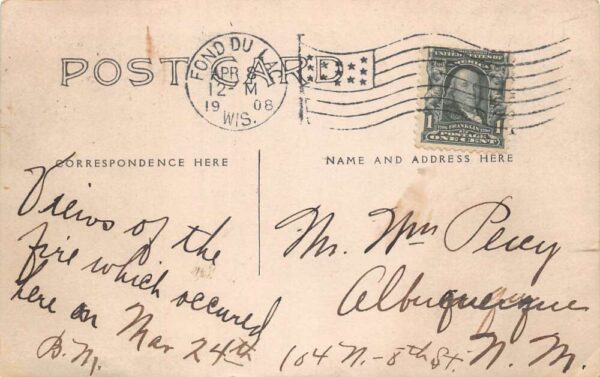 POST CARD
FOND DU LAC
APR 8
12 M
1908
WIS.
UNITED STATES OF AMERICA
FRANKLIN
POSTAGE
1 ONE CENT 1
CORRESPONDENCE HERE
NAME AND ADDRESS HERE
Views of the
fire which occured
here on Mar 24th
B.M.
Mr. Wm Percy
Albuquerque
104 N.-8th St. N. M.